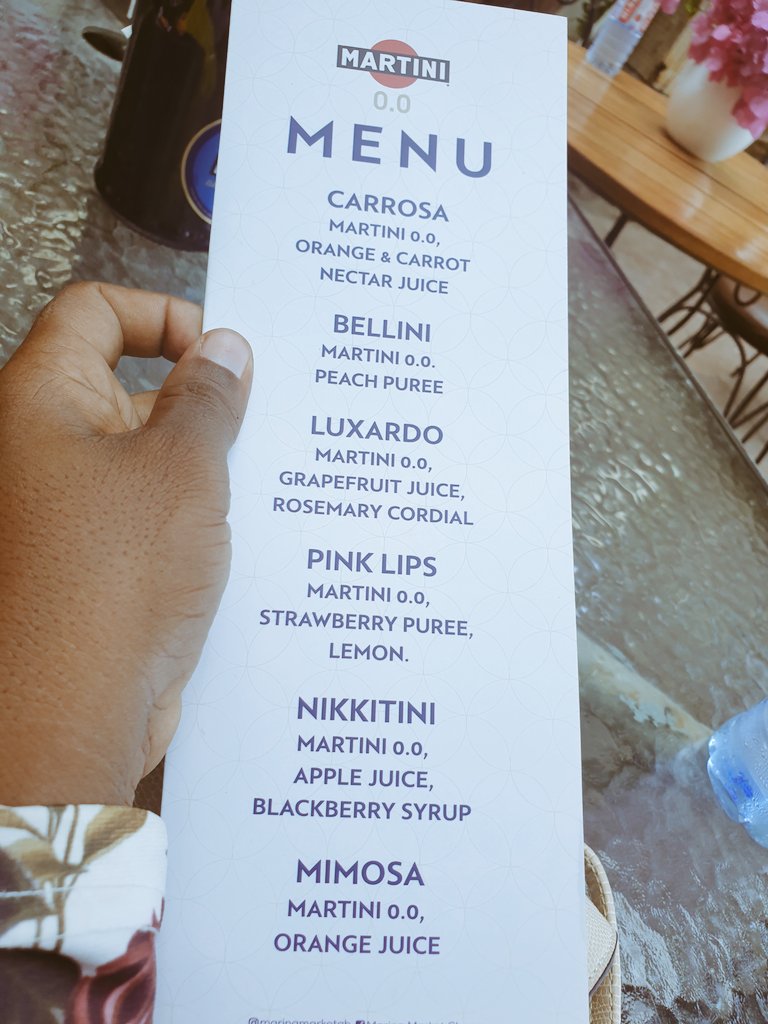 MARTINI
0.0
MENU
CARROSA
MARTINI 0.0,
ORANGE & CARROT
NECTAR JUICE
BELLINI
MARTINI 0.0.
PEACH PUREE
LUXARDO
MARTINI 0.0,
GRAPEFRUIT JUICE,
ROSEMARY CORDIAL
PINK LIPS
MARTINI 0.0,
STRAWBERRY PUREE,
LEMON.
NIKKITINI
MARTINI 0.0,
APPLE JUICE,
BLACKBERRY SYRUP
MIMOSA
MARTINI 0.0,
ORANGE JUICE